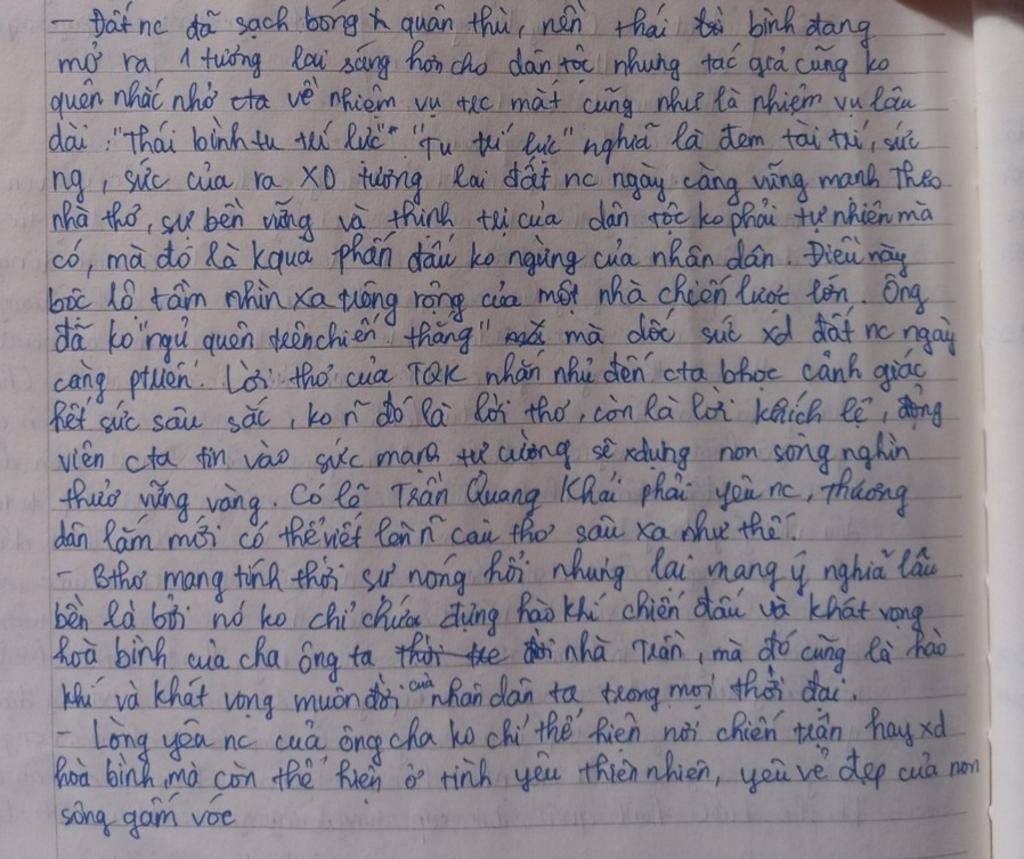 - Đất nc đã sạch bóng quân thù, nền thái bình đang
mở ra 1 tương lai sáng hơn cho dân tộc nhưng tác giả cũng ko
quên nhắc nhở cta về nhiệm vụ trc mắt cũng như là nhiệm vụ lâu
dài: "Thái bình tu trí lực" "Tu trí lực" nghĩa là đem tài trí, sức
ng, sức của ra XD tương lai đất nc ngày càng vững mạnh Theo
nhà thơ, sự bền vững và thịnh trị của dân tộc ko phải tự nhiên mà
có, mà đó là kqua phấn đấu ko ngừng của nhân dân Điều này
bộc lộ tầm nhìn xa trông rộng của một nhà chiến lược lớn. Ông
đã ko "ngủ quên trên chiến thắng" mà dốc sức xd đất nc ngày
càng ptriển. Lời thơ của TQK nhắn nhủ đến cta bhọc cảnh giác
hết sức sâu sắc, ko n~ đó là lời thơ, còn là lời khích lệ, động
viên cta tin vào sức mạnh tự cường sẽ xdựng non sông nghìn
thuở vững vàng. Có lẽ Trần Quang Khải phải yêu nc, thương
dân lắm mới có thể viết lên n~ câu thơ sâu xa như thế.
- Bthơ mang tính thời sự nóng hổi nhưng lại mang ý nghĩa lâu
bền là bởi nó ko chỉ chứa đựng hào khí chiến đấu và khát vọng
hoà bình của cha ông ta thời trc đời nhà Trần, mà đó cũng là hào
khí và khát vọng muôn đời của nhân dân ta trong mọi thời đại.
- Lòng yêu nc của ông cha ko chỉ thể hiện nơi chiến trận hay xd
hoà bình, mà còn thể hiện ở tình yêu thiên nhiên, yêu vẻ đẹp của non
sông gấm vóc